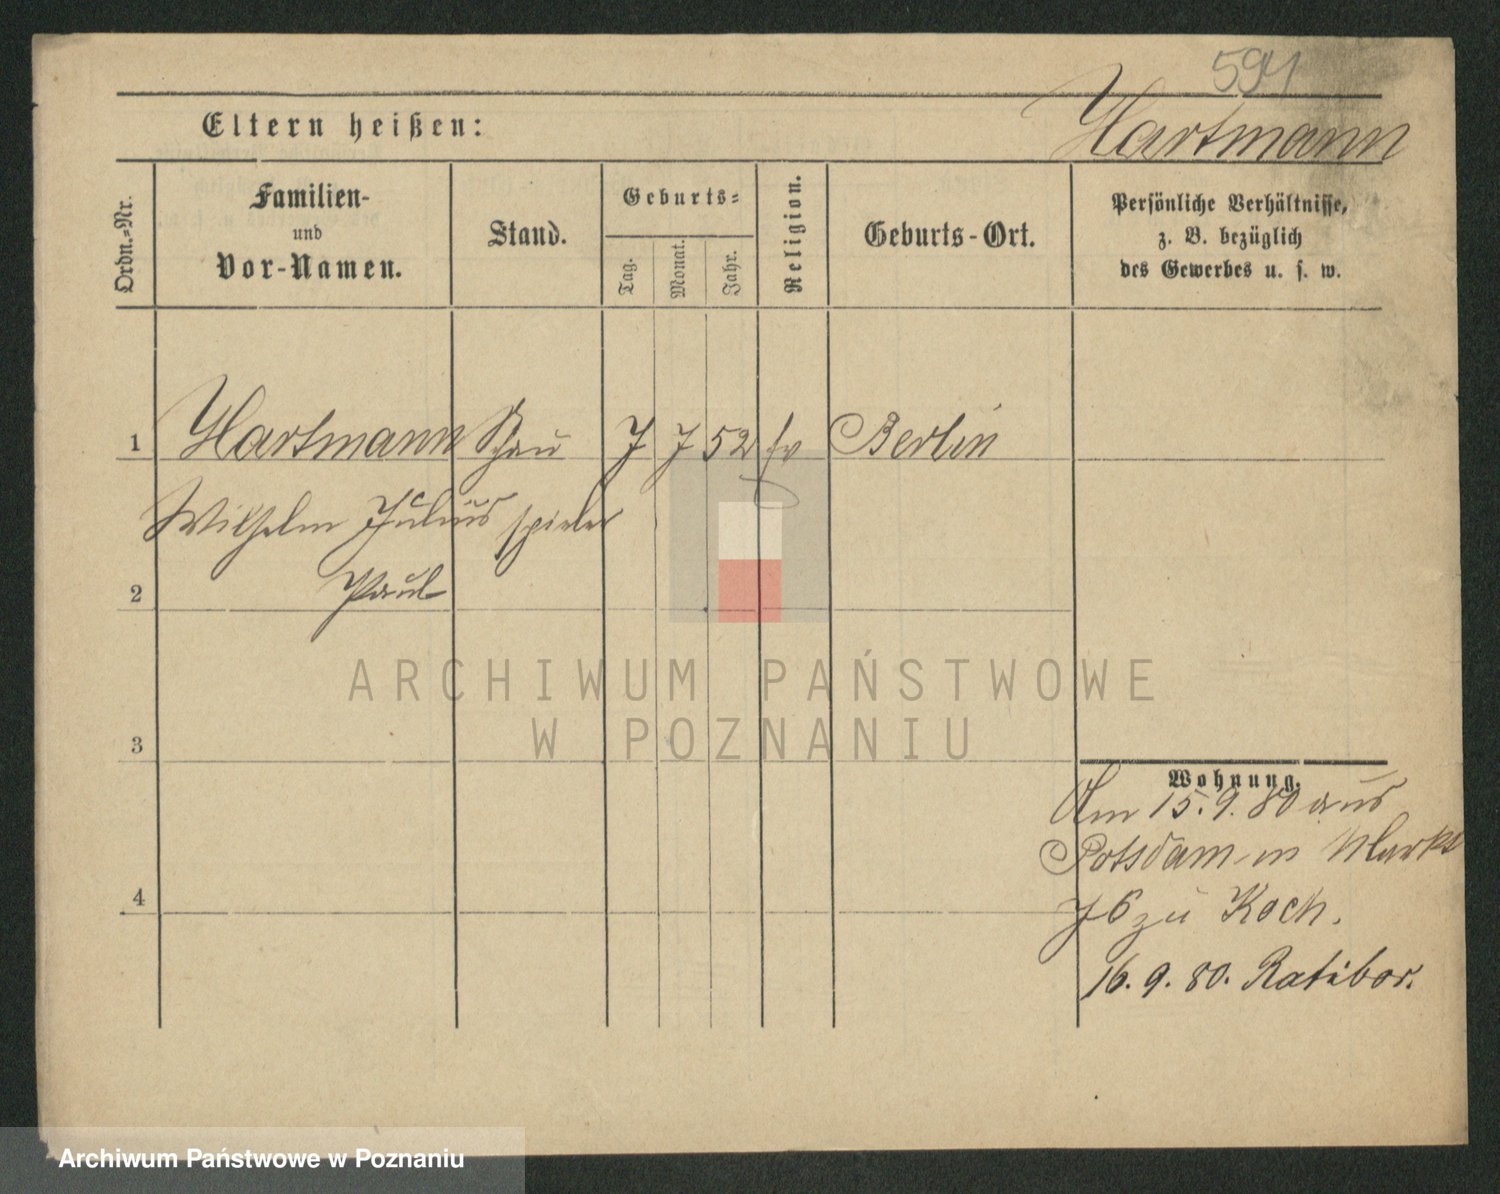 594
Hartmann
Eltern heißen:
Ordn.=Nr.
Familien-
und
Vor-Namen.
Stand.
Geburts=
Tag.
Monat.
Jahr.
Religion.
Geburts-Ort.
Persönliche Verhältnisse,
z. B. bezüglich
des Gewerbes u. s. w.
1 Hartmann Schau 7 7 52 ev Berlin
Wilhelm Julius spieler
2 Paul
ARCHIWUM PAŃSTWOWE
W POZNANIU
3
Wohnung.
Am 15.9.80 aus
Potsdam in Markt
76 zu Koch.
4
16.9.80. Ratibor.
Archiwum Państwowe w Poznaniu